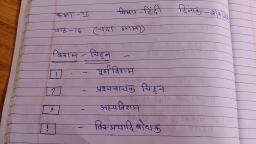 कक्षा-II विषय-हिंदी दिनांक-
पाठ-16
विराम-चिह्न -
। - पूर्णविराम
? - प्रश्नवाचक चिह्न
, - अल्पविराम
! - विस्मयादिबोधक